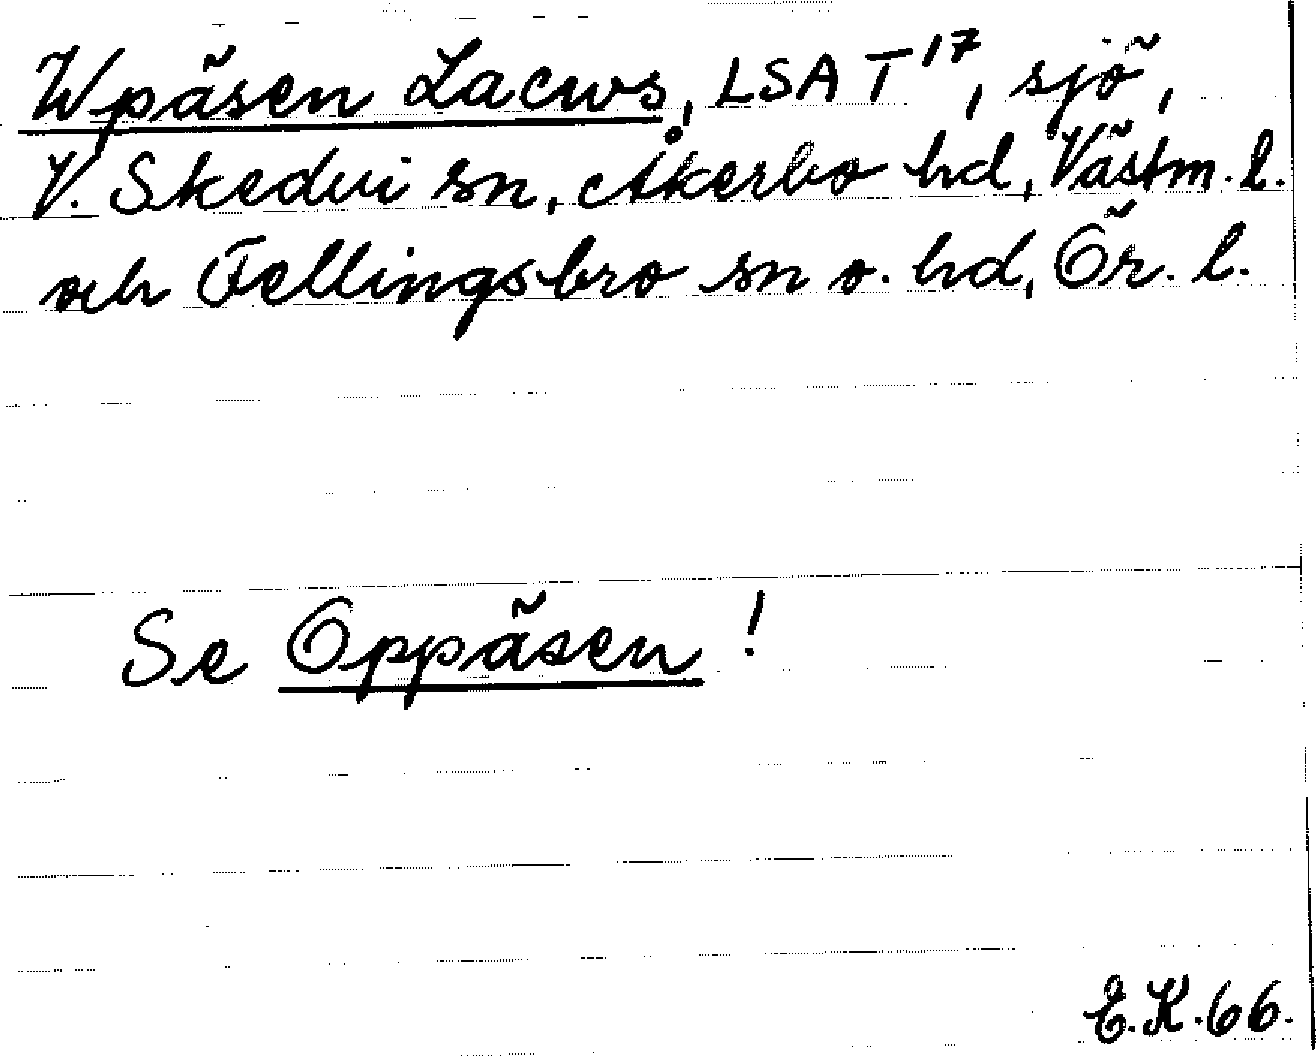 Wpäsen Lacws, LSA T¹⁷, sjö,
V. Skedvi sn, Åkerbo hd, Västm. l.
och Fellingsbro sn o. hd, Ör. l.
Se Oppäsen!
E.K.66.